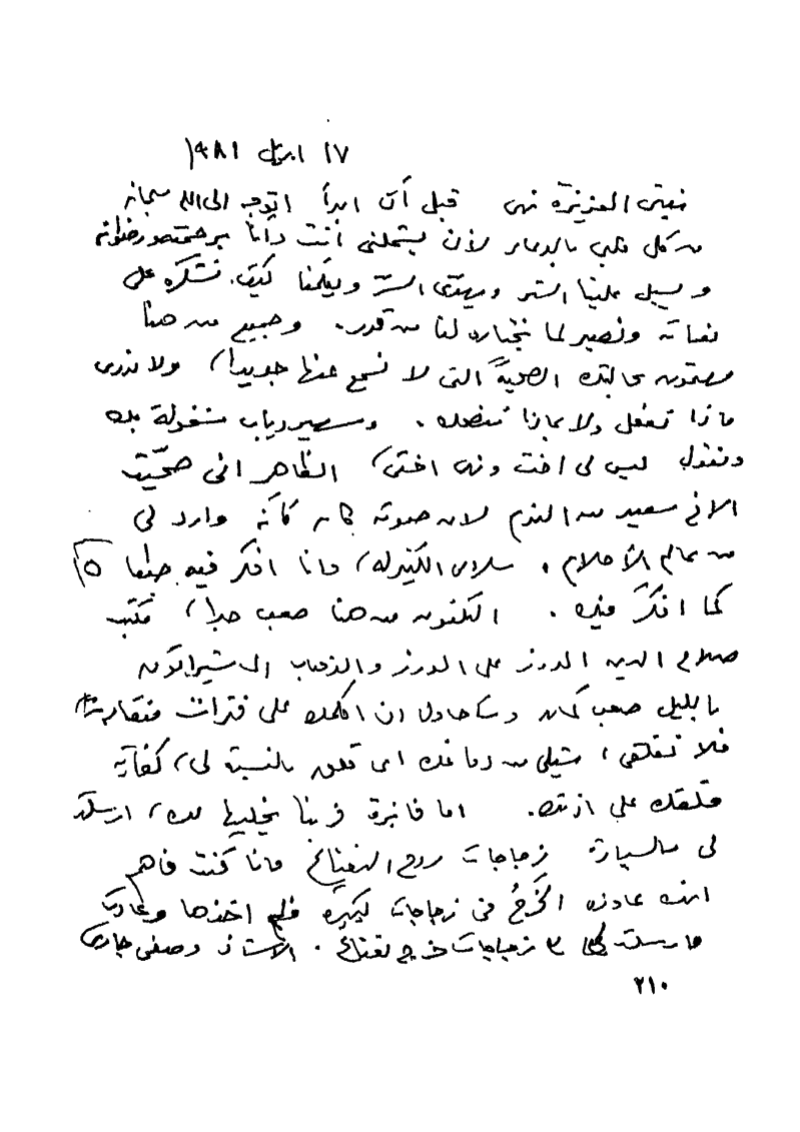 ١٧ ابريل ١٩٨١
نهى العزيزة نهى قبل أن ابدأ اتوجه الى الله سبحانه
من كل قلبى بالدعاء لأن يشملنى أنت وأنا برحمته ورضوانه
و يسبل علينا الستر ويهدى السر ويعلمنا كيف نشكره على
نعمائه ونصبر لما يختاره لنا من قدر. وجميع من هنا
مهتمون بحالتك الصحية التى لا نسمع عنها جديدا، ولا ندرى
ماذا تفعل ولا بماذا ننصحك. وسهير رباب مشغولة بك
وتقول ليس لى اخت ونهى اختى، الظاهر انى صحّيت
الاخ سعيد من النوم لان صوته كان كأنه وارد لى
من عالم الأحلام، سلامى الكثير له، وانا افكر فيه طبعا
كما افكر فيك. التلفون من هنا صعب جدا، مكتب
صلاح الدين المدرز على الدرز والذهاب الى شيراتون
بالليل صعب كمان وسأحاول ان اكلمك على فترات متقاربة
فلا تقلقى، شيلى من دماغك اى قلق بالنسبة لى، كفاية
قلقك على ازمتك. اما فانيزة فربنا يخليها لك، ارسلت
لى بالسيارة زجاجات روح النعناع وانا كنت فاهم
انك عاوزه الخَرجُ فى زجاجات كبيرة فلم اخذها وعادت
فارسلت لها ٣ زجاجات فرج نعناع. الأستاذ وصفى جارى
٢١٠